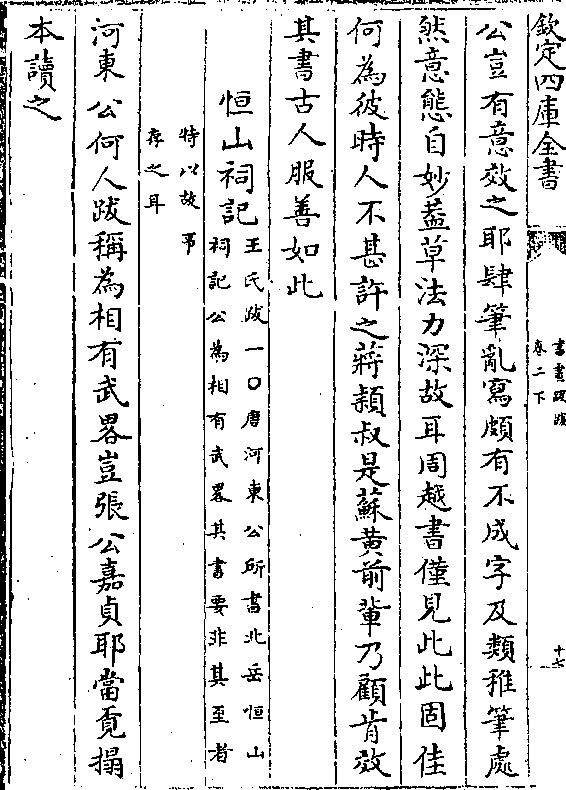 欽定四庫全書
書畫跋跋
卷二下
十七
公豈有意效之耶肆筆亂寫頗有不成字及類稚筆處
然意態自妙葢草法力深故耳周越書僅見此此固佳
何為彼時人不甚許之蔣穎叔是蘇黄前輩乃顧肯效
其書古人服善如此
恒山祠記
王氏跋一〇唐河東公所書北岳恒山
祠記公為相有武畧其書要非其至者
特以故事
存之耳
河東公何人跋稱為相有武畧豈張公嘉貞耶當覓搨
本讀之